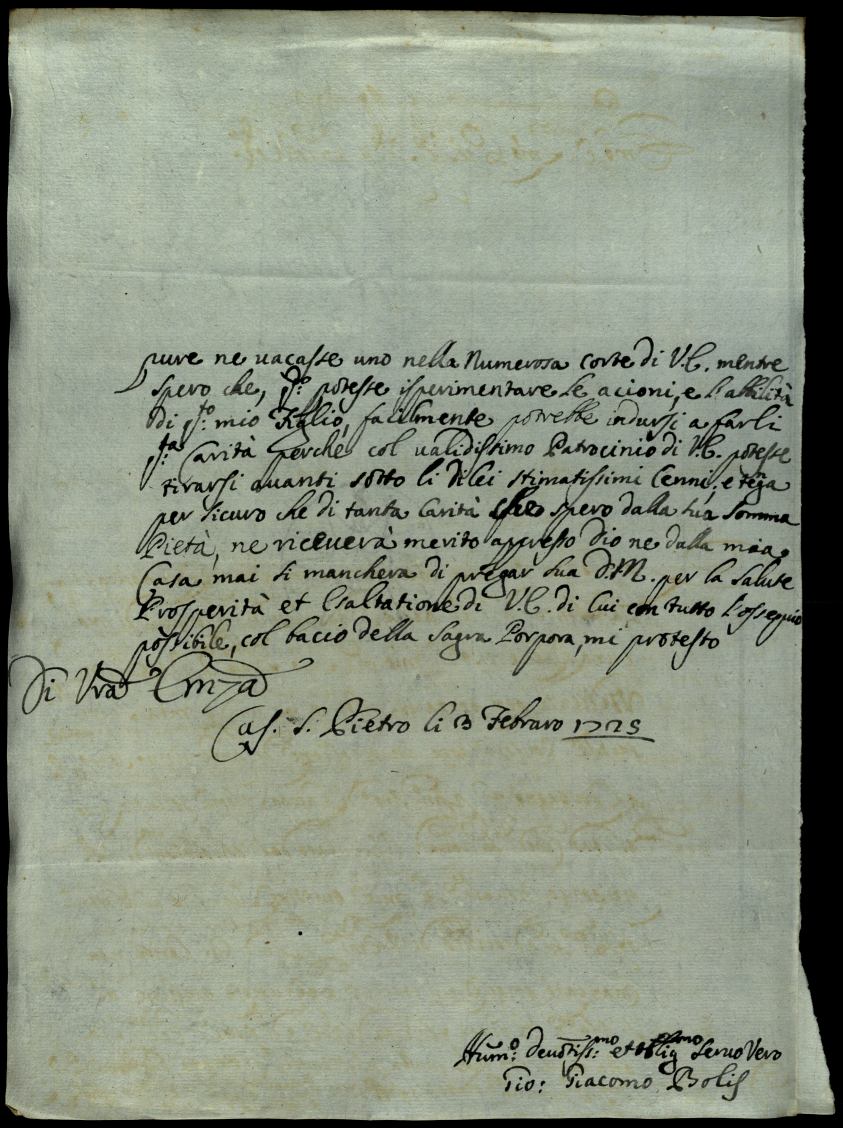 pure ne uacasse uno nella Numerosa corte di V.E. mentre
spero che, q.do potesse isperimentare le acioni, e l'abilità
di q.to mio Figlio, facilmente potrebbe indursi a farli
q.ta Carità perche col validissimo Patrocinio di V.E. potesse
tirarsi auanti sotto li di lei stimatissimi Cenni, e tēga
per sicuro che di tanta Carità che spero dalla sua Somma
Pietà, ne riceuerà merito appresso Dio ne dalla mia
Casa mai si mancherà di pregar sua D.M. per la Salute
Prosperità et Esaltatione di V.E. di cui con tutto l'ossequio
possibile, col bacio della Sagra Porpora, mi protesto
Di Vrā Emza
Cas. S. Pietro li 3 Febraro 1725
Hum.o deuotiss.mo et oblig.mo Seruo Vero
Gio: Giacomo Bolis